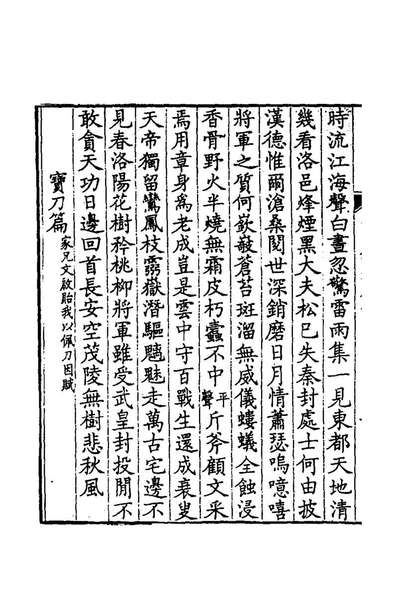 時流江海聲白晝忽驚雷雨集一見東都天地清
幾看洛邑烽煙黑大夫松已失秦封處士何由披
漢德惟爾滄桑閱世深銷磨日月情蕭瑟嗚噫嘻
將軍之質何嶔𡾋蒼苔斑溜無威儀螻蟻全蝕浸
香骨野火半燒無霜皮朽蠹不中平聲斤斧顧文采
焉用章身為老成豈是雲中守百戰生還成衰叟
天帝獨留鸞鳳枝靈嶽潛驅魑魅走萬古宅邊不
見春洛陽花樹矜桃柳將軍雖受武皇封投閒不
敢貪天功日邊回首長安空茂陵無樹悲秋風
寶刀篇家兄文啟貽我以佩刀因賦